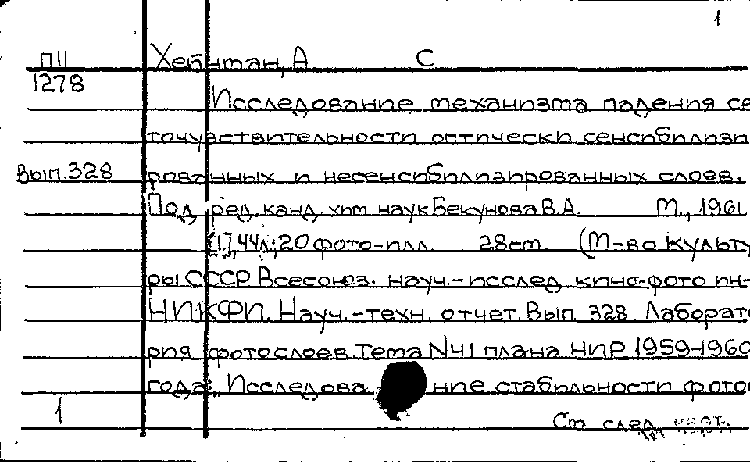 1
П11 Хебнтан, А С
1278
Исследование механизма падения све
точувствительности оптически сенсибилизи
Вып. 328 рованных и несенсибилизированных слоев.
Под ред. канд. хим. наук Бекунова В.А. М., 1961
[1], 44л; 20 фото-илл. 28см. (М-во культу
ры СССР Всесоюз. науч.-исслед. кино-фото ин-
НИКФИ. Науч.-техн. отчет. Вып. 328. Лаборато
рия фотослоев. Тема N41 плана НИР 1959-1960
года. Исследова ние стабильности фото
1 См след.